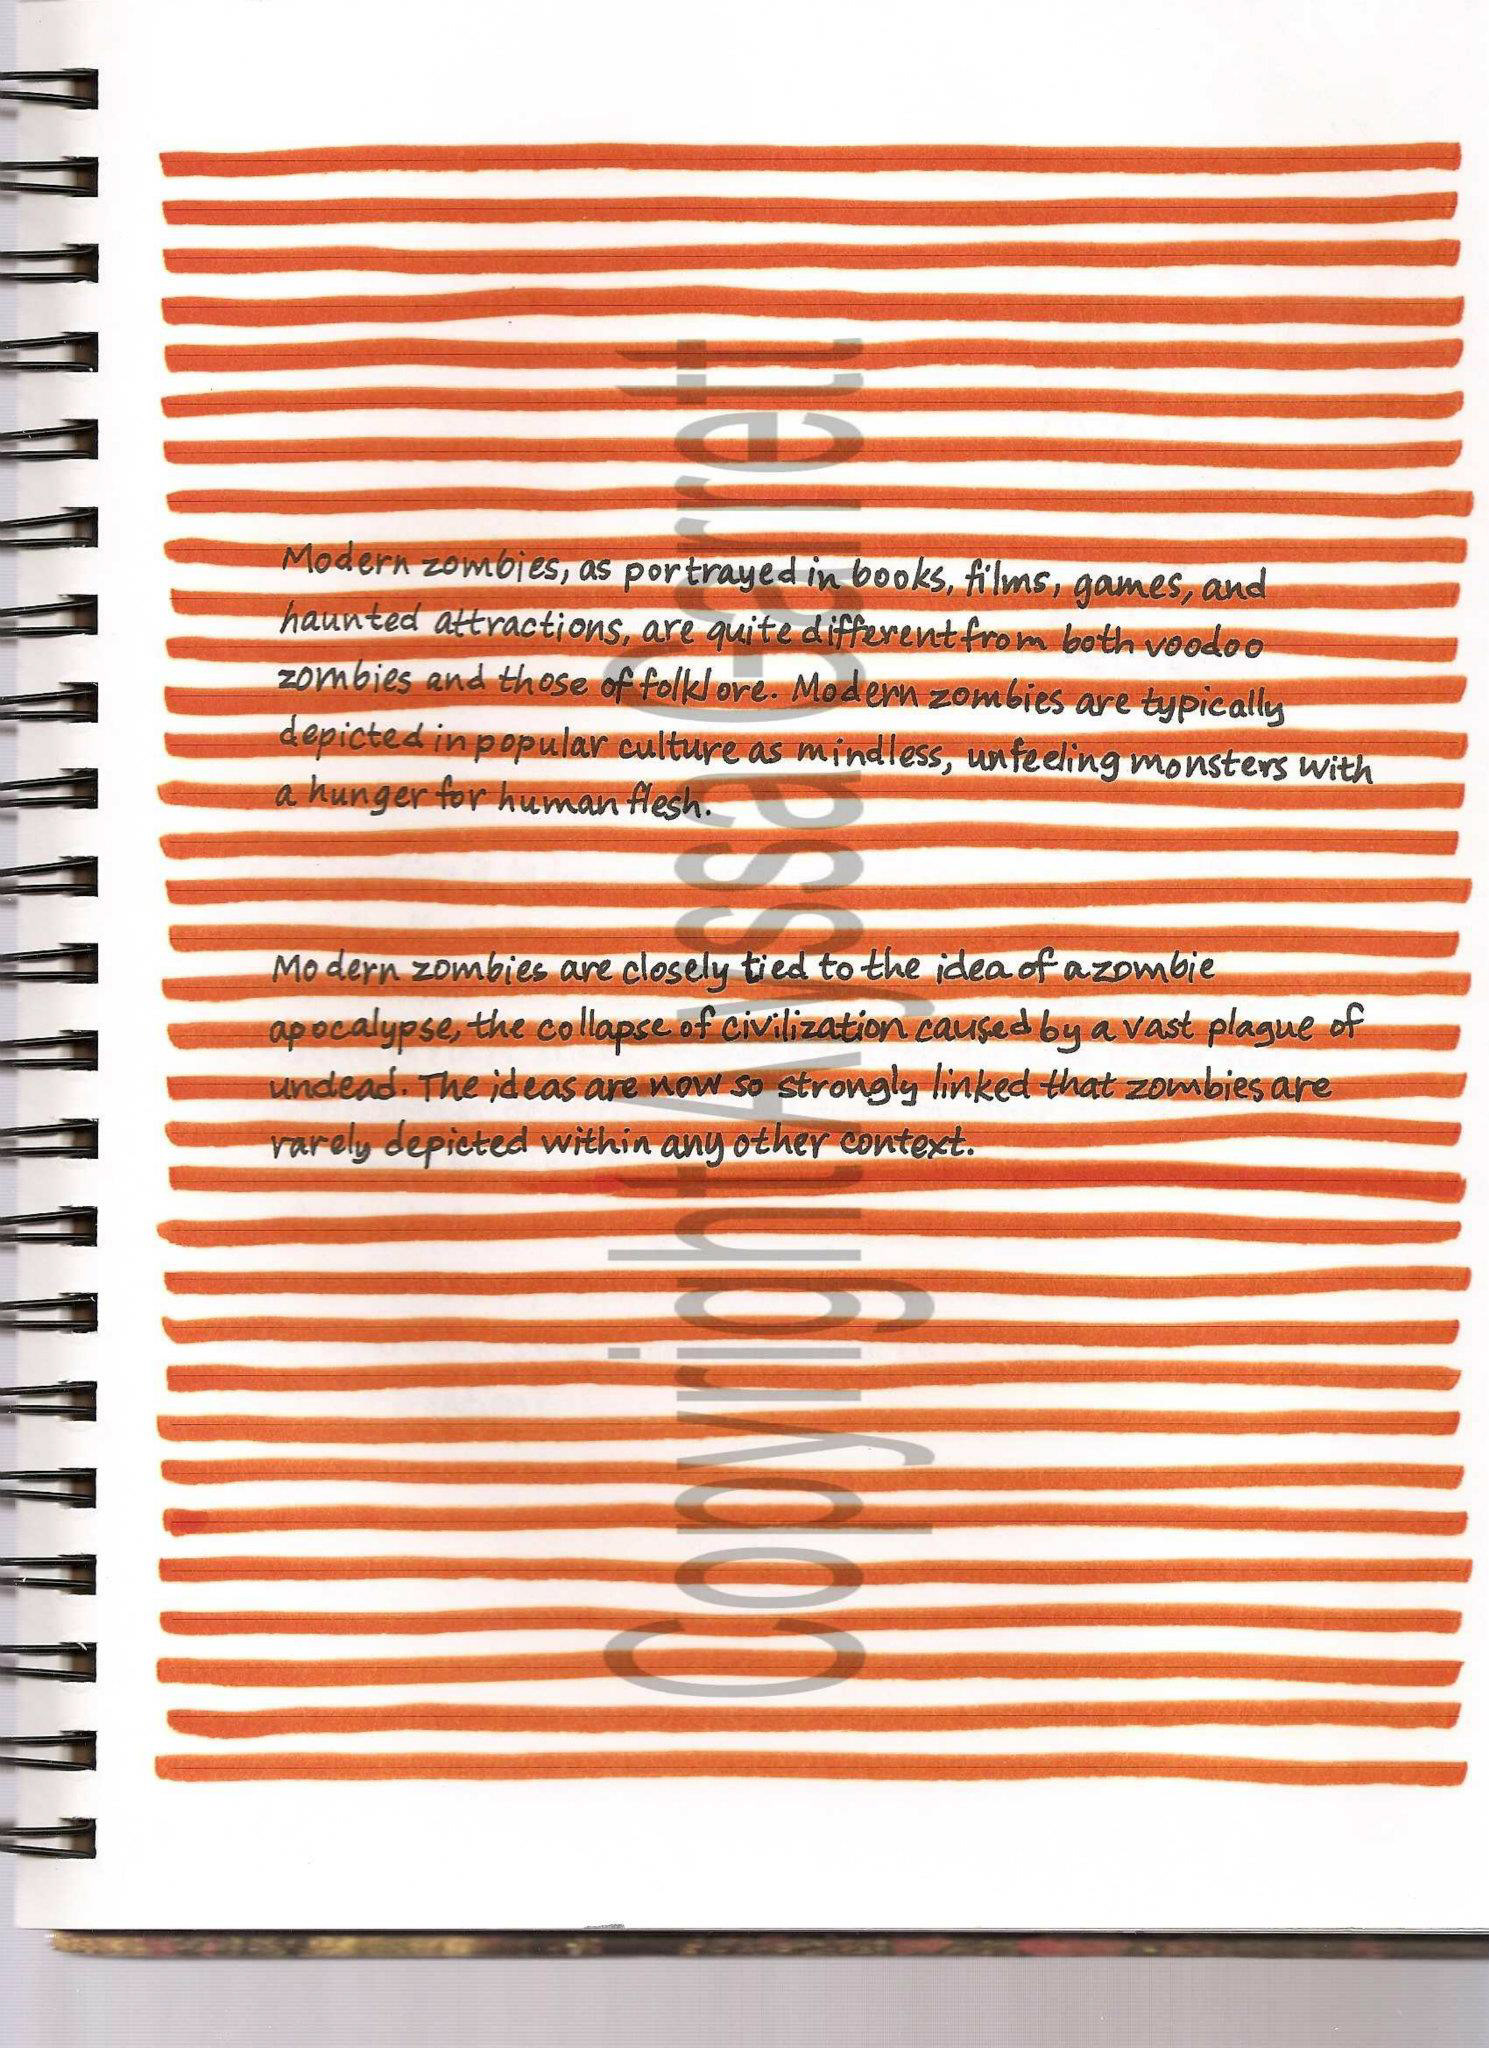 Modern zombies, as portrayed in books, films, games, and
haunted attractions, are quite different from both voodoo
zombies and those of folklore. Modern zombies are typically
depicted in popular culture as mindless, unfeeling monsters with
a hunger for human flesh.
Modern zombies are closely tied to the idea of a zombie
apocalypse, the collapse of civilization caused by a vast plague of
undead. The ideas are now so strongly linked that zombies are
rarely depicted within any other context.
Copyright Alyssa Garret